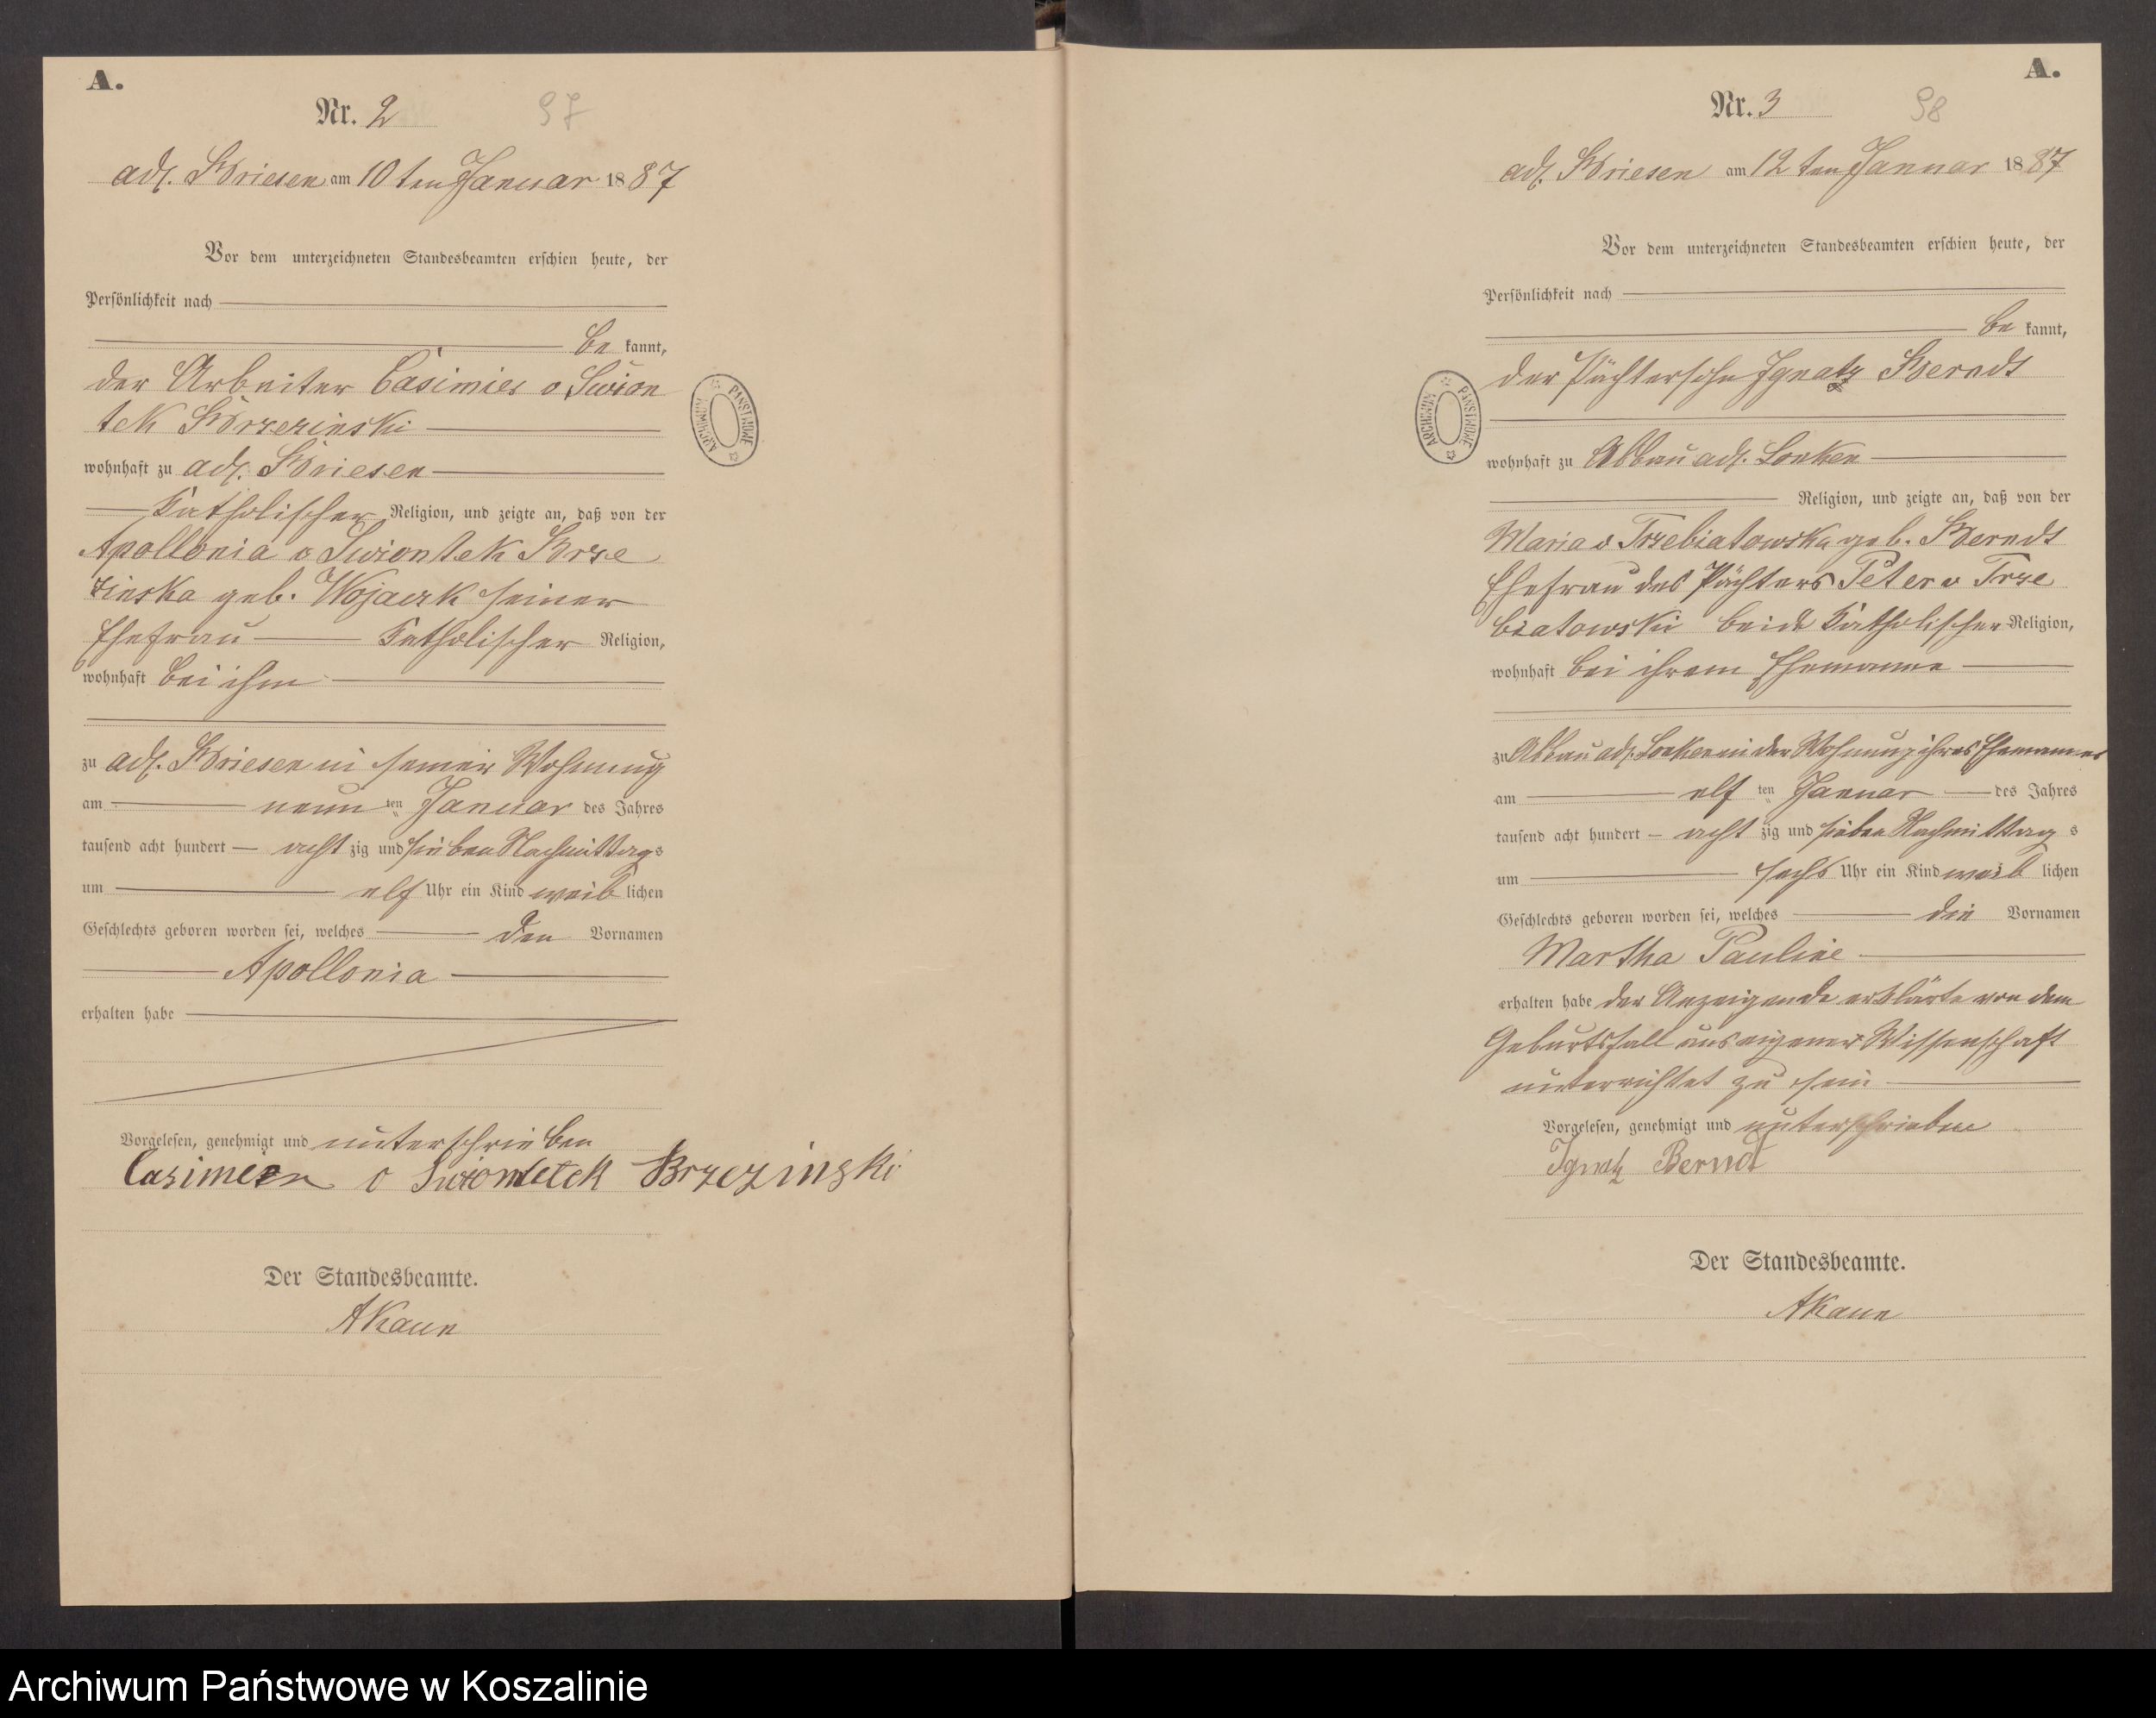 A.
Nr. 2
97
adl. Briesen am 10ten Januar 1887
Vor dem unterzeichneten Standesbeamten erschien heute, der
Persönlichkeit nach
be kannt,
der Arbeiter Casimier v Swion
tek Brzezinski
wohnhaft zu adl. Briesen
Katholischer Religion, und zeigte an, daß von der
Apollonia v Swiontek Brze
zinska geb. Wojack seiner
Ehefrau Katholischer Religion,
wohnhaft bei ihm
zu adl. Briesen in seiner Wohnung
am neun ten Januar des Jahres
tausend acht hundert acht zig und sieben Nachmittags
um elf Uhr ein Kind weib lichen
Geschlechts geboren worden sei, welches den Vornamen
Apollonia
erhalten habe
Vorgelesen, genehmigt und unterschrieben
Casimier v Swiontek Brzezinski
Der Standesbeamte.
AKaun
ARCHIWUM PAŃSTWOWE
A.
Nr. 3
98
adl. Briesen am 12ten Januar 1887
Vor dem unterzeichneten Standesbeamten erschien heute, der
Persönlichkeit nach
be kannt,
der Pächtersohn Ignatz Berndt
ARCHIWUM PAŃSTWOWE
wohnhaft zu Abbau adl. Lonken
Religion, und zeigte an, daß von der
Maria v Trzebiatowska geb. Berndt
Ehefrau des Pächters Peter v Trze
biatowski beide Katholischer Religion,
wohnhaft bei ihrem Ehemanne
zu Abbau adl. Lonken in der Wohnung ihres Ehemannes
am elf ten Januar des Jahres
tausend acht hundert acht zig und sieben Nachmittag s
um sechs Uhr ein Kind weib lichen
Geschlechts geboren worden sei, welches die Vornamen
Martha Pauline
erhalten habe der Anzeigende erklärte von dem
Geburtsfall aus eigener Wissenschaft
unterrichtet zu sein
Vorgelesen, genehmigt und unterschrieben
Ignatz Berndt
Der Standesbeamte.
AKaun
Archiwum Państwowe w Koszalinie